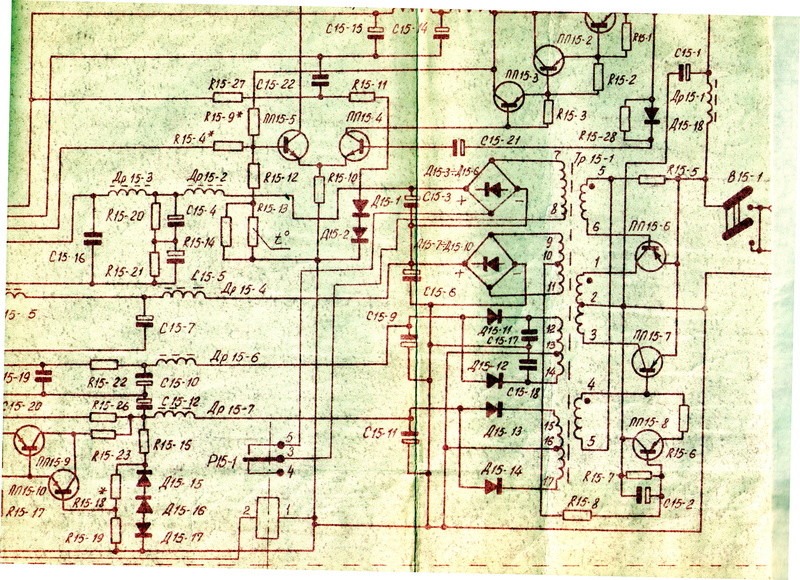 C15-15
C15-14
ПП15-2
R15-1
C15-1
R15-27
C15-22
R15-11
ПП15-3
R15-2
Др15-1
R15-9*
ПП15-5
ПП15-4
R15-3
R15-28
Д15-18
R15-4*
C15-21
Тр 15-1
Др 15-3
Др15-2
R15-12
R15-10
Д15-1
Д15-3÷Д15-6
7
5
R15-5
В15-1
R15-20
C15-4
R15-13
C15-3
+
-
8
C15-16
R15-14
t°
Д15-2
Д15-7÷Д15-10
9
6
ПП15-6
R15-21
C15-5
Др 15-4
C15-6
+
-
10
11
1
2
15-5
C15-7
C15-9
Д15-11
C15-17
12
13
3
ПП15-7
Др 15-6
15-19
R15-22
C15-10
Д15-12
C15-18
14
4
C15-20
R15-26
C15-12
Др 15-7
C15-11
Д15-13
15
16
ПП15-8
ПП15-9
R15-23
R15-15
Р15-1
5
3
4
5
R15-6
ПП15-10
*
Д15-15
Д15-14
17
R15-7
R15-17
R15-18
Д15-16
2
1
R15-8
C15-2
R15-19
Д15-17